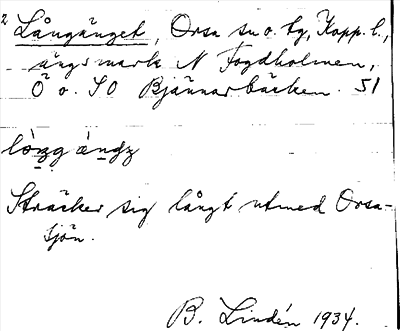 2 Långänget, Orsa sn o. tg, Kopp. l.,
ängsmark N Fogdholmen,
Ö o. SO Bjännarbäcken. 51
Sträcker sig långt utmed Orsa-
sjön.
B. Lindén 1934.